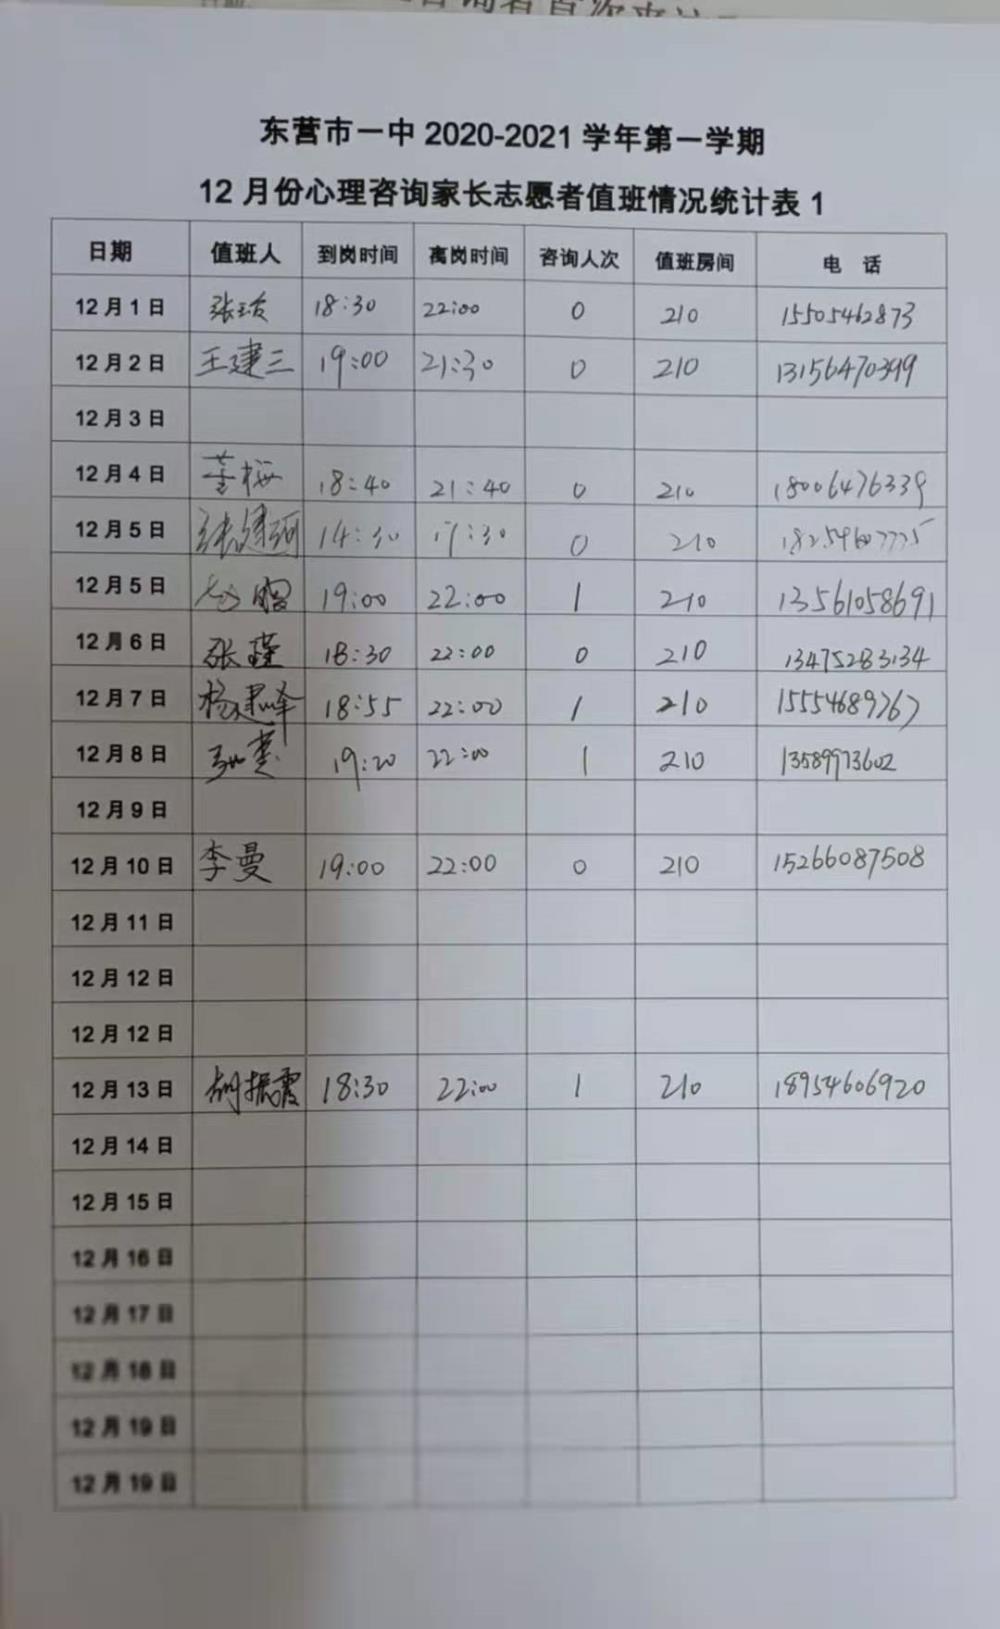 东营市一中 2020-2021 学年第一学期
12 月份心理咨询家长志愿者值班情况统计表 1
日期 值班人 到岗时间 离岗时间 咨询人次 值班房间 电 话
12 月 1 日 18:30 22:00 0 210 15505462873
12 月 2 日 王建三 19:00 21:30 0 210
12 月 3 日
12 月 4 日 董梅 18:40 21:40 0 210 18006476339
12 月 5 日 14:30 17:30 0 210
12 月 5 日 19:00 22:00 1 210 13561058691
12 月 6 日 张瑾 18:30 22:00 0 210 13475283134
12 月 7 日 杨建峰 18:55 22:00 1 210 15554689767
12 月 8 日 19:20 22:00 1 210 13589973602
12 月 9 日
12 月 10 日 李曼 19:00 22:00 0 210 15266087508
12 月 11 日
12 月 12 日
12 月 12 日
12 月 13 日 胡振霞 18:30 22:00 1 210 18954606920
12 月 14 日
12 月 15 日
12 月 16 日
12 月 17 日
12 月 18 日
12 月 19 日
12 月 19 日